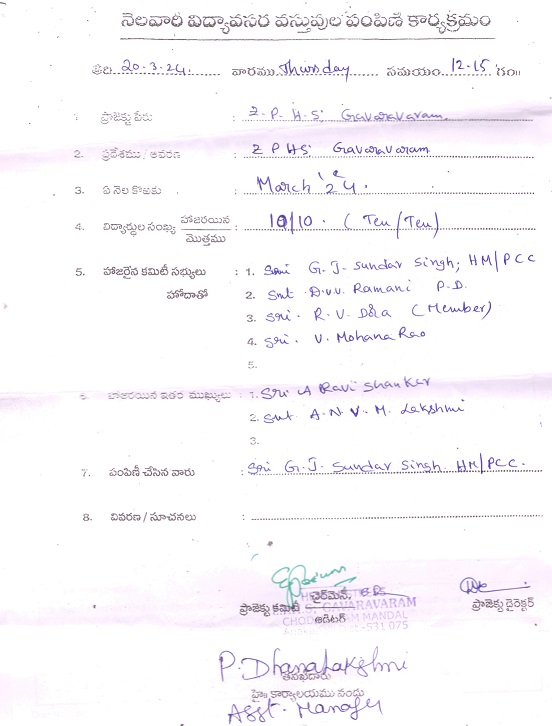 నెలవారి విద్యావసర వస్తువుల పంపిణి కార్యక్రమం
తేది 20.3.24. వారము Thursday సమయం 12-15 గం॥
1. ప్రాజెక్టు పేరు : Z. P. H. S; Gavaravaram.
2. ప్రదేశము / ఆవరణ : Z P H S; Gavaravaram
3. ఏ నెల కొఱకు : March '24.
4. విద్యార్ధుల సంఖ్య హాజరయిన/మొత్తము : 10/10. ( Ten/Ten)
5. హాజరైన కమిటీ సభ్యులు : 1. Sri G. J. Sundar Singh; HM/PCC
హోదాతో 2. Smt D.V.V. Ramani P.D.
3. Sri. R. V. (Member)
4. Sri. V. Mohana Rao
5.
6. హాజరయిన ఇతర ముఖ్యులు : 1. Sri A Ravi Shanker
2. Smt A. N. V. M. Lakshmi
3.
7. పంపిణీ చేసిన వారు : Sri G. J. Sundar Singh HM/PCC.
8. వివరణ / సూచనలు :
ప్రాజెక్టు కమిటీ ఛైర్‌మెన్, ప్రాజెక్టు డైరెక్టర్
GAVARAVARAM
ఆడిటర్
MANDAL
-531 075
P. Dhanalakshmi
తనిఖీదారు
హై కార్యాలయము నందు
Asst. Manager